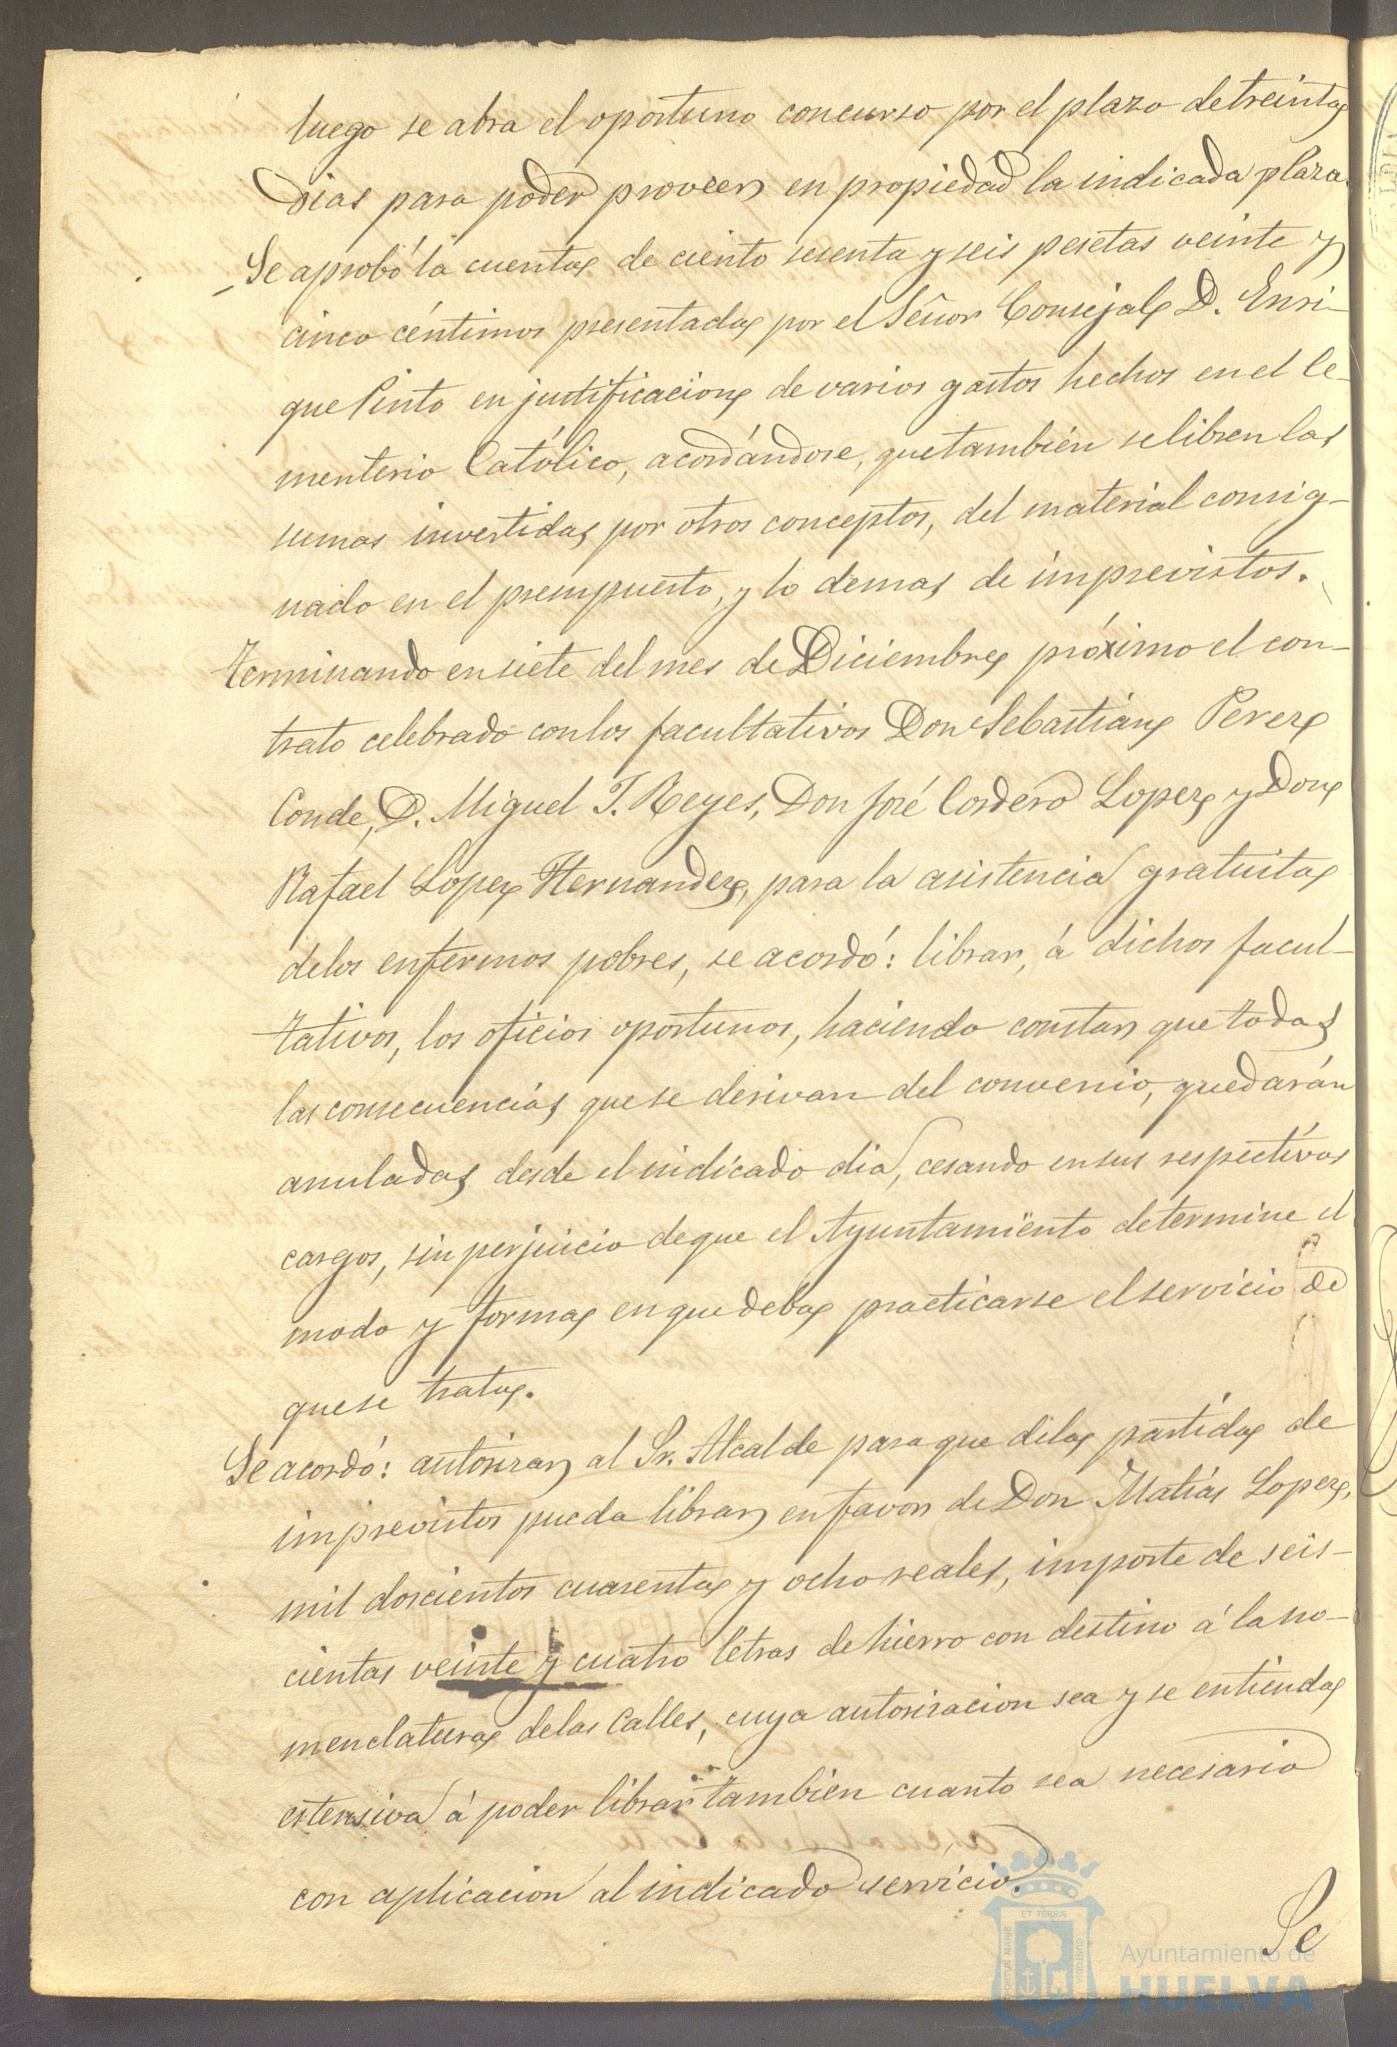 luego se abra el oportuno concurso por el plazo de treinta
dias para poder proveer en propiedad la indicada plaza.
Se aprobó la cuenta de ciento sesenta y seis pesetas veinte y
cinco céntimos presentada por el Señor Consejal D. Enri-
que Pinto en justificacion de varios gastos hechos en el Ce-
menterio Católico, acordándose, que también se libren las
sumas invertidas por otros conceptos, del material consig-
nado en el presupuesto, y lo demas de imprevistos.
Terminando en siete del mes de Diciembre próximo el con-
trato celebrado con los facultativos Don Sebastián Perez
Conde, D. Miguel T. Reyes, Don José Cordero Lopez y Don
Rafael Lopez Hernandez, para la asistencia gratuita
de los enfermos pobres, se acordó: librar, á dichos facul-
tativos, los oficios oportunos, haciendo constar que todas
las consecuencias que se derivan del convenio, quedarán
anuladas desde el indicado dia, cesando en sus respectivos
cargos, sin perjuicio de que el Ayuntamiento determine el
modo y forma en que deba practicarse el servicio de
que se trata.
Se acordó: autorizar al Sr. Alcalde para que de la partida de
imprevistos pueda librar en favor de Don Matías Lopez,
mil doscientos cuarenta y ocho reales, importe de seis-
cientas veinte y cuatro letras de hierro con destino á la no-
menclatura de las Calles, cuya autorizacion sea y se entienda
estensiva á poder librar tambien cuanto sea necesario
con aplicacion al indicado servicio.
Se
Ayuntamiento de
HUELVA